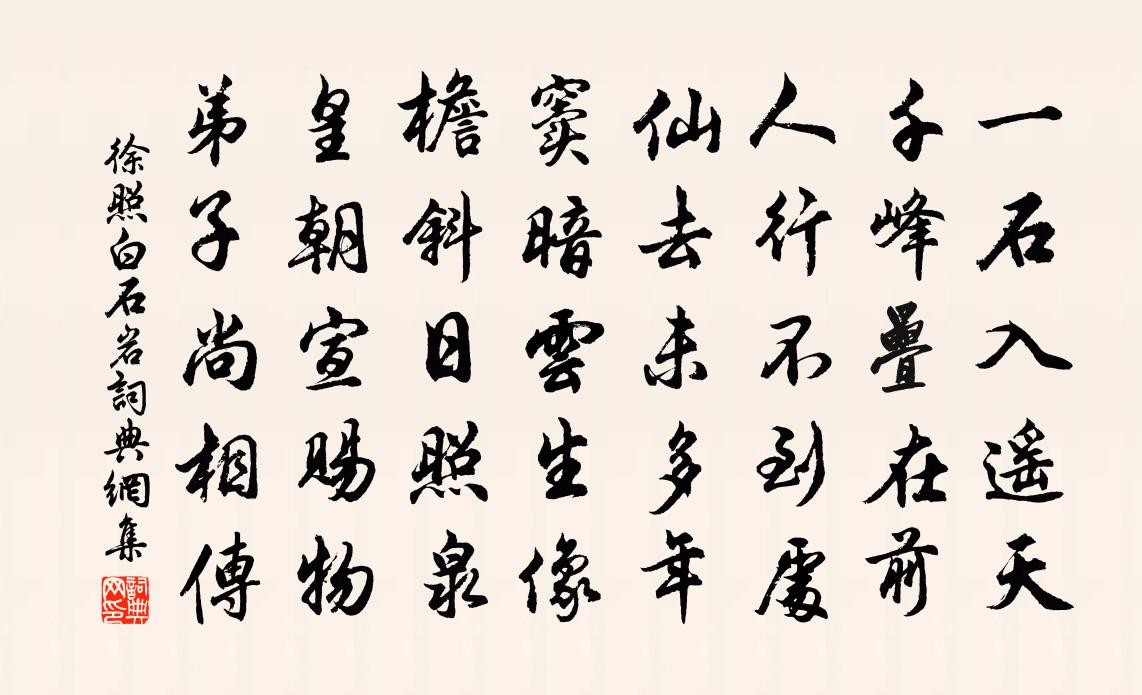 一石入遥天
千峰疊在前
人行不到處
仙去未多年
竇暗雲生像
檐斜日照泉
皇朝宣賜物
弟子尚相傳
徐照白石岩詞典網集
詞典网印